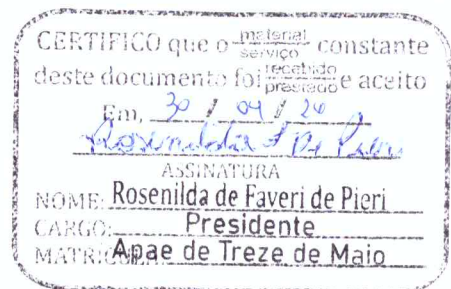 CERTIFICO que o material serviço constante
deste documento foi recebido prestado e aceito
Em, 30 / 04 / 26
Rosenilda F De Pieri
ASSINATURA
NOME: Rosenilda de Faveri de Pieri
CARGO: Presidente
MATRIC Apae de Treze de Maio